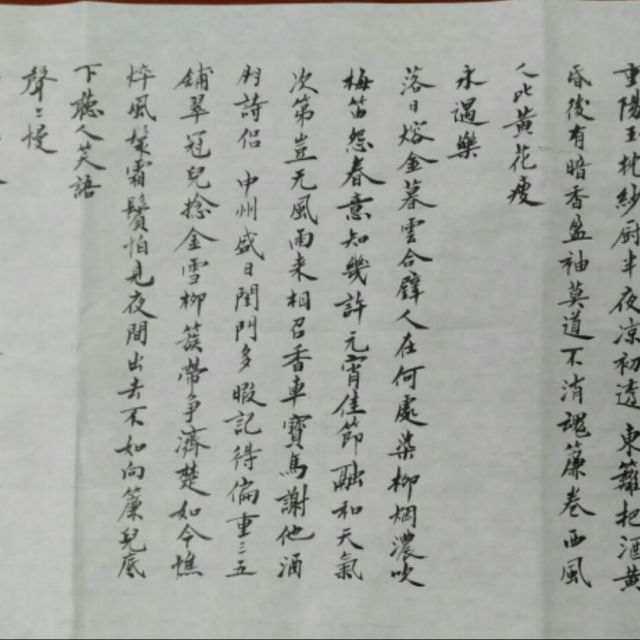 重陽玉枕紗厨半夜涼初透東籬把酒黄
昏後有暗香盈袖莫道不消魂簾卷西風
人比黄花瘦
永遇樂
落日熔金暮雲合璧人在何處染柳烟濃吹
梅笛怨春意知幾許元宵佳節融和天氣
次第豈无風雨来相召香車寶馬謝他酒
朋詩侣 中州盛日閨門多暇記得偏重三五
鋪翠冠兒捻金雪柳簇帶争濟楚如今憔
悴風鬟霜鬢怕見夜間出去不如向簾兒底
下聽人笑語
聲〻慢